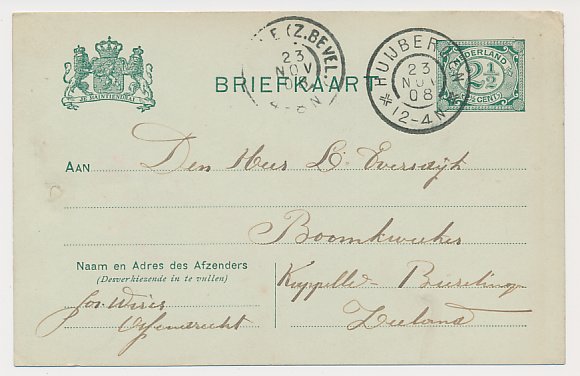 E (Z. BEVEL.
23
NOV
08
4-8N
HUIJBERGEN
23
NOV
08
12-4N
NEDERLAND
2½
CENT
JE MAINTIENDRAI
BRIEFKAART
AAN Den Heer L. Eversdijk
Boomkweeker
Naam en Adres des Afzenders
(Desverkiezende in te vullen)
Kappelle - Biezelinge
Jos. Wirix
Ossendrecht
Zeeland